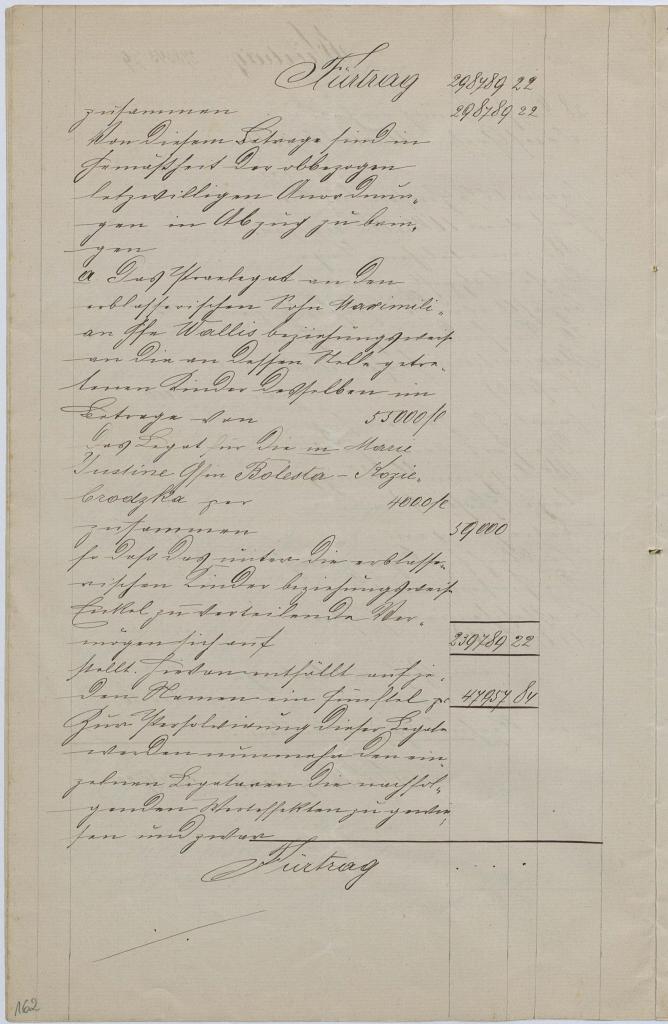 Fürtrag 298789 22
zusammen 298789 22
Von diesem Betrage sind in
Gemäßheit der obbezogen
letzwilligen Anordnun-
gen in Abzug zu brin-
gen
a Das Praelegat an den
erblasserischen Sohn Maximili-
an Gfe Wallis beziehungsweise
an die an dessen Stelle getre-
tenen Kinder desselben im
Betrage von 55000 fl
das Legat für die m Marie
Justine Gfin Bolesta - Kozie-
brodzka per 4000 fl
zusammen 59000
so daß das unter die erblasse-
rischen Kinder beziehungsweise
Enkel zu verteilende Ver-
mögen sich auf 239789 22
stellt. Hievon entfällt auf je-
den Stamm ein fünftel pr 47957 84
Zur Persolvirung dieser Legate
werden nunmehr den ein
zelnen Legataren die nachfol-
genden Werteffekten zu gewie-
sen und zwar
Fürtrag
162